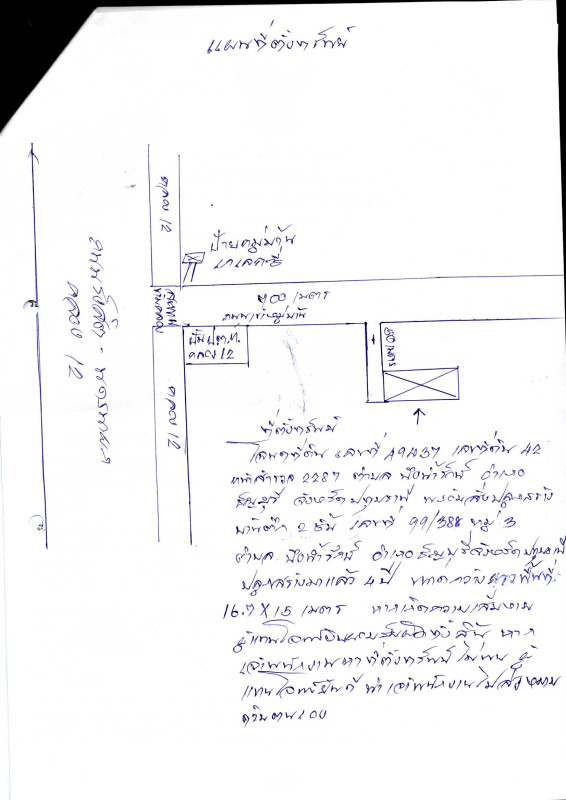 แผนที่ตั้งทรัพย์
คลอง 12
ป้ายหมู่บ้าน
ถนนรังสิต - นครนายก
คลอง 12
สะพาน
ข้ามคลอง
700 เมตร
ถนนเข้าหมู่บ้าน
ปั๊ม ป.ต.ท.
คลอง 12
50 เมตร
คลอง 12
ที่ตั้งทรัพย์
โฉนดที่ดิน เลขที่ 49437 เลขที่ดิน 42
หน้าสำรวจ 2287 ตำบล บึงน้ำรักษ์ อำเภอ
ธัญบุรี จังหวัดปทุมธานี พร้อมสิ่งปลูกสร้าง
บ้านตึก 2 ชั้น เลขที่ 99/388 หมู่ 3
ตำบล บึงน้ำรักษ์ อำเภอธัญบุรี จังหวัดปทุมธานี
ปลูกสร้างมาแล้ว 4 ปี ขนาดกว้างยาวพื้นที่
16.7 X 15 เมตร หากเกิดความเสียหาย
ผู้แทนโจทก์ยินยอมรับผิดทั้งสิ้น หาก
เจ้าพนักงานหาที่ตั้งทรัพย์ไม่พบ ผู้
แทนโจทก์ยินดี นำเจ้าพนักงานไป